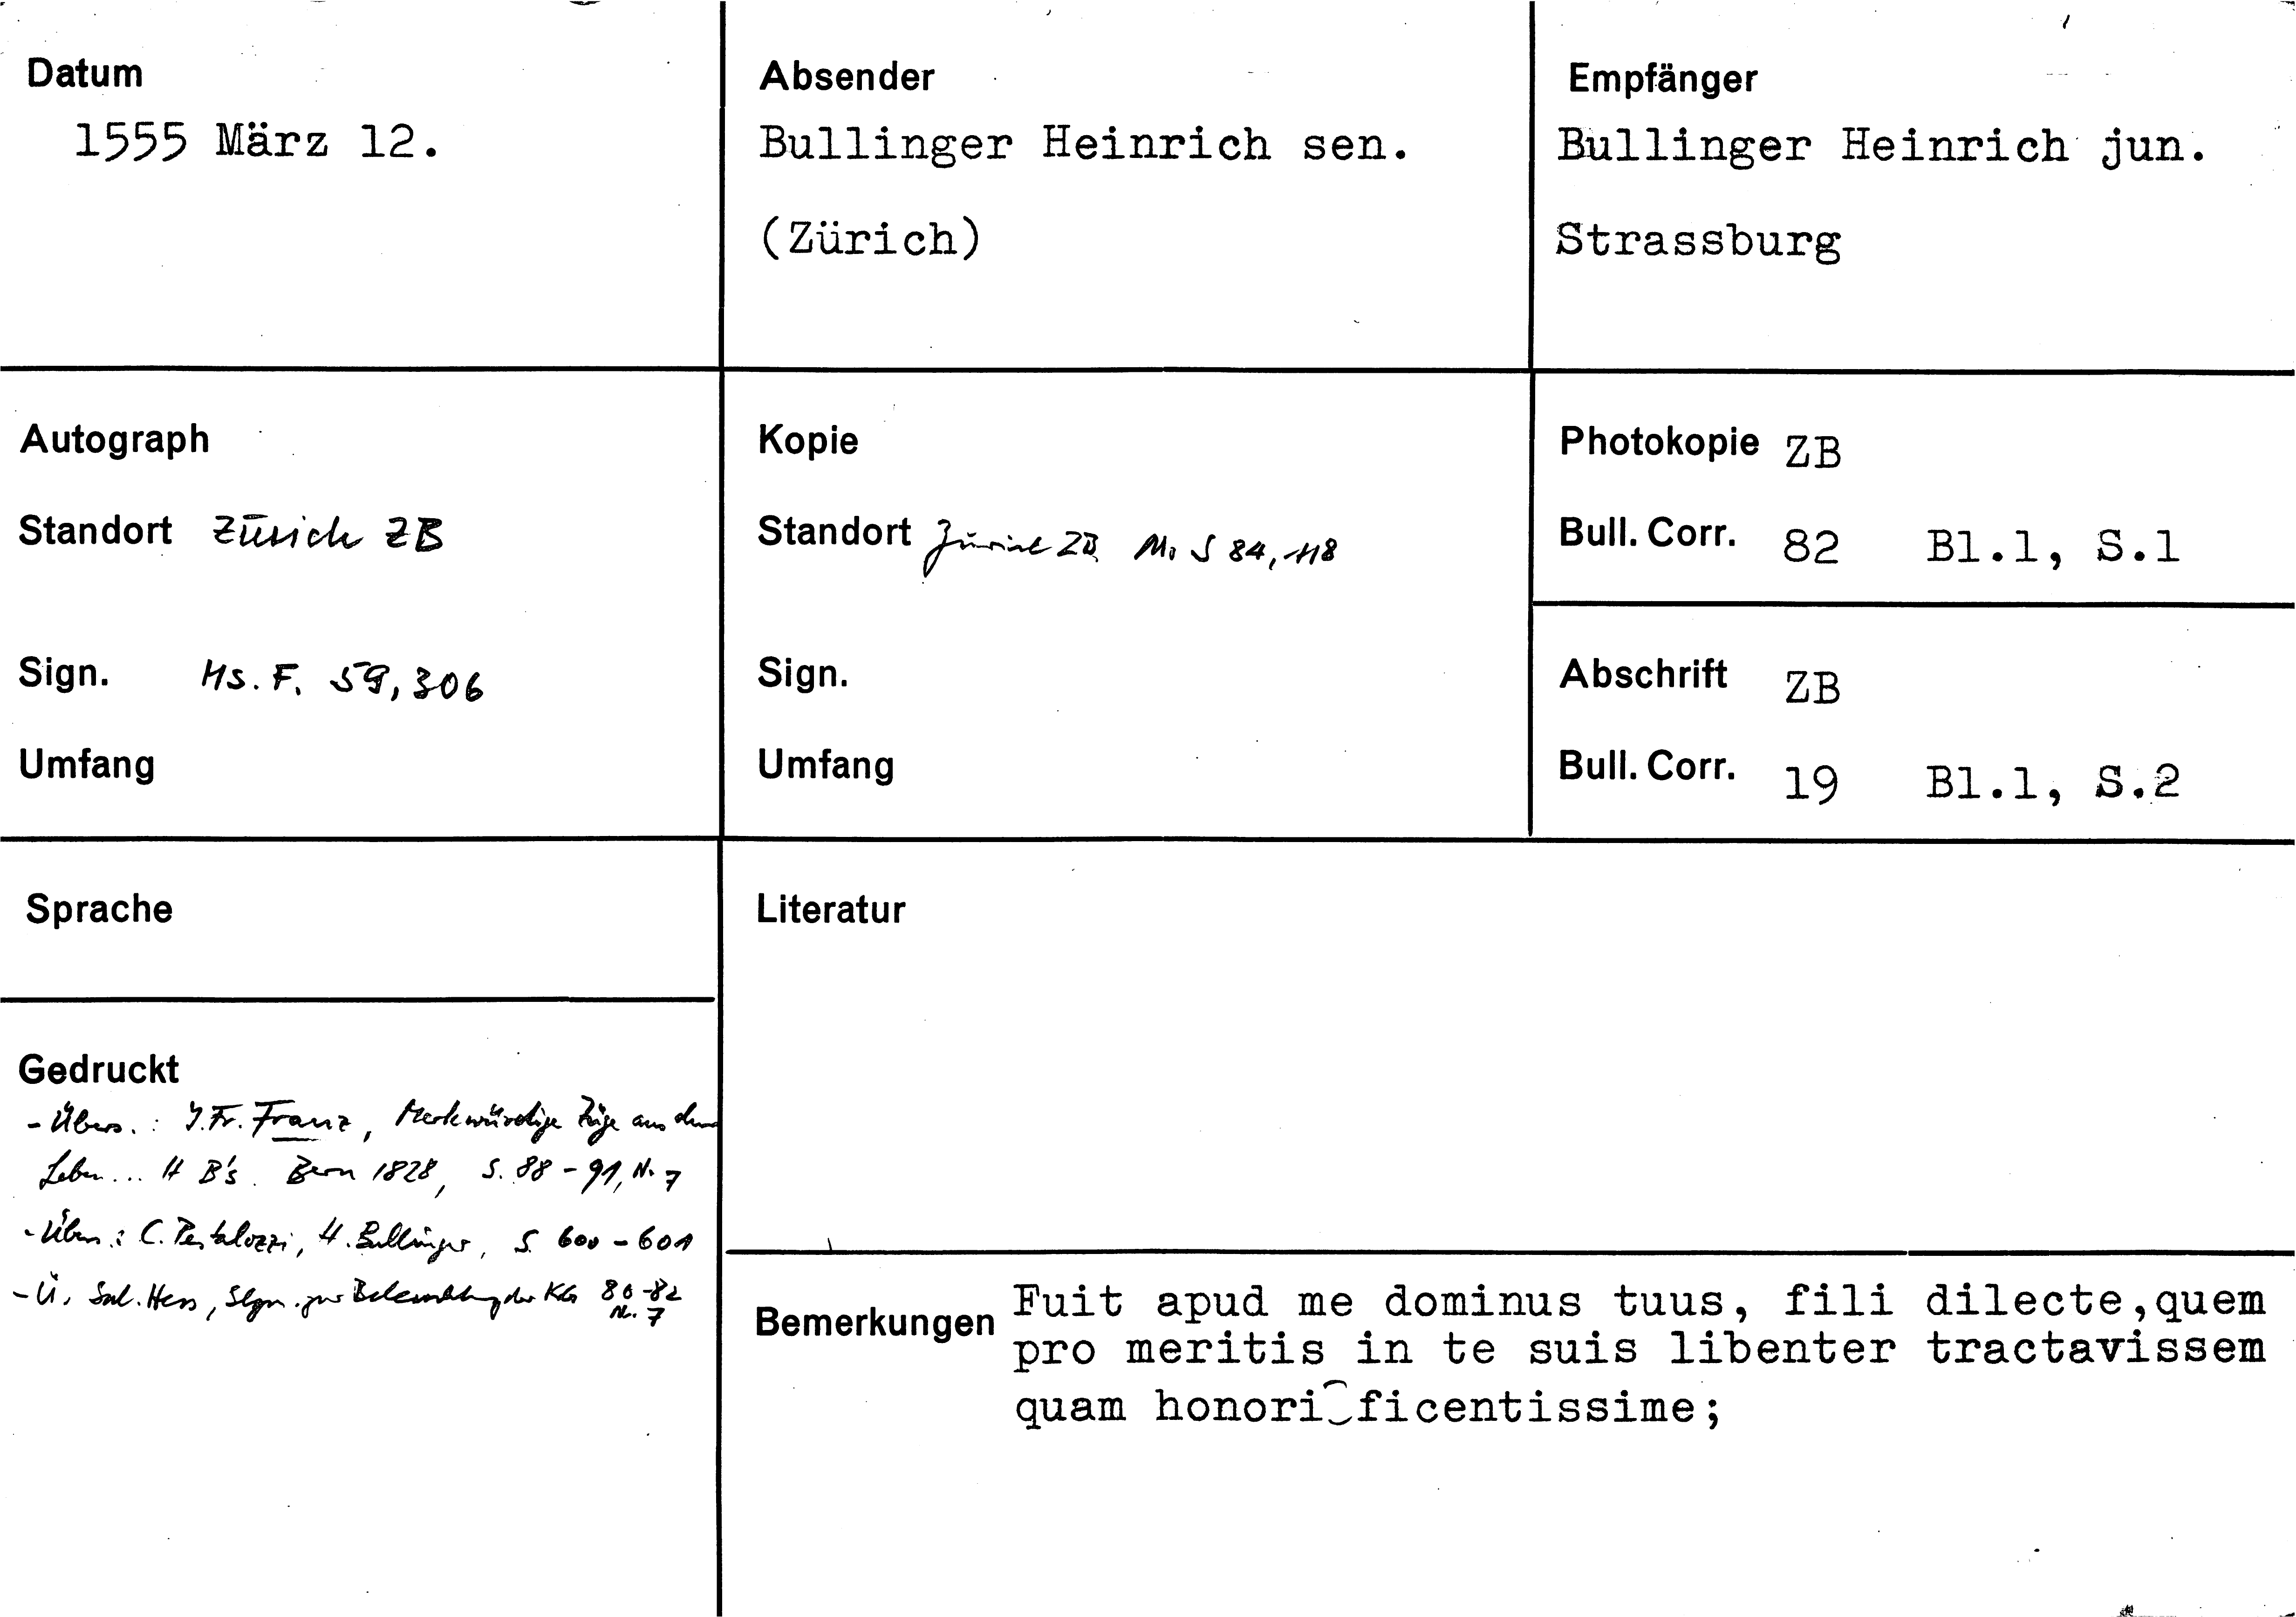 Datum
1555 März 12.
Absender
Bullinger Heinrich sen.
(Zürich)
Empfänger
Bullinger Heinrich jun.
Strassburg
Autograph
Standort Zürich ZB
Sign. Hs. F. 59,306
Umfang
Kopie
Standort Zürich ZB Ms S 84, 118
Sign.
Umfang
Photokopie ZB
Bull. Corr. 82 Bl.1, S.1
Abschrift ZB
Bull. Corr. 19 Bl.1, S.2
Sprache
Gedruckt
- Übers.: J. Fr. Franz, Merkwürdige Züge aus dem
Leben... H B's. Bern 1828, S. 88-91, Nr. 7
- Übers.: C. Pestalozzi, H. Bullinger, S. 600-601
- Ü. Sal. Hess, Slgn. zur Beleuchtung der KG 80-82
Nr. 7
Literatur
Bemerkungen
Fuit apud me dominus tuus, fili dilecte,quem
pro meritis in te suis libenter tractavissem
quam honori ficentissime;